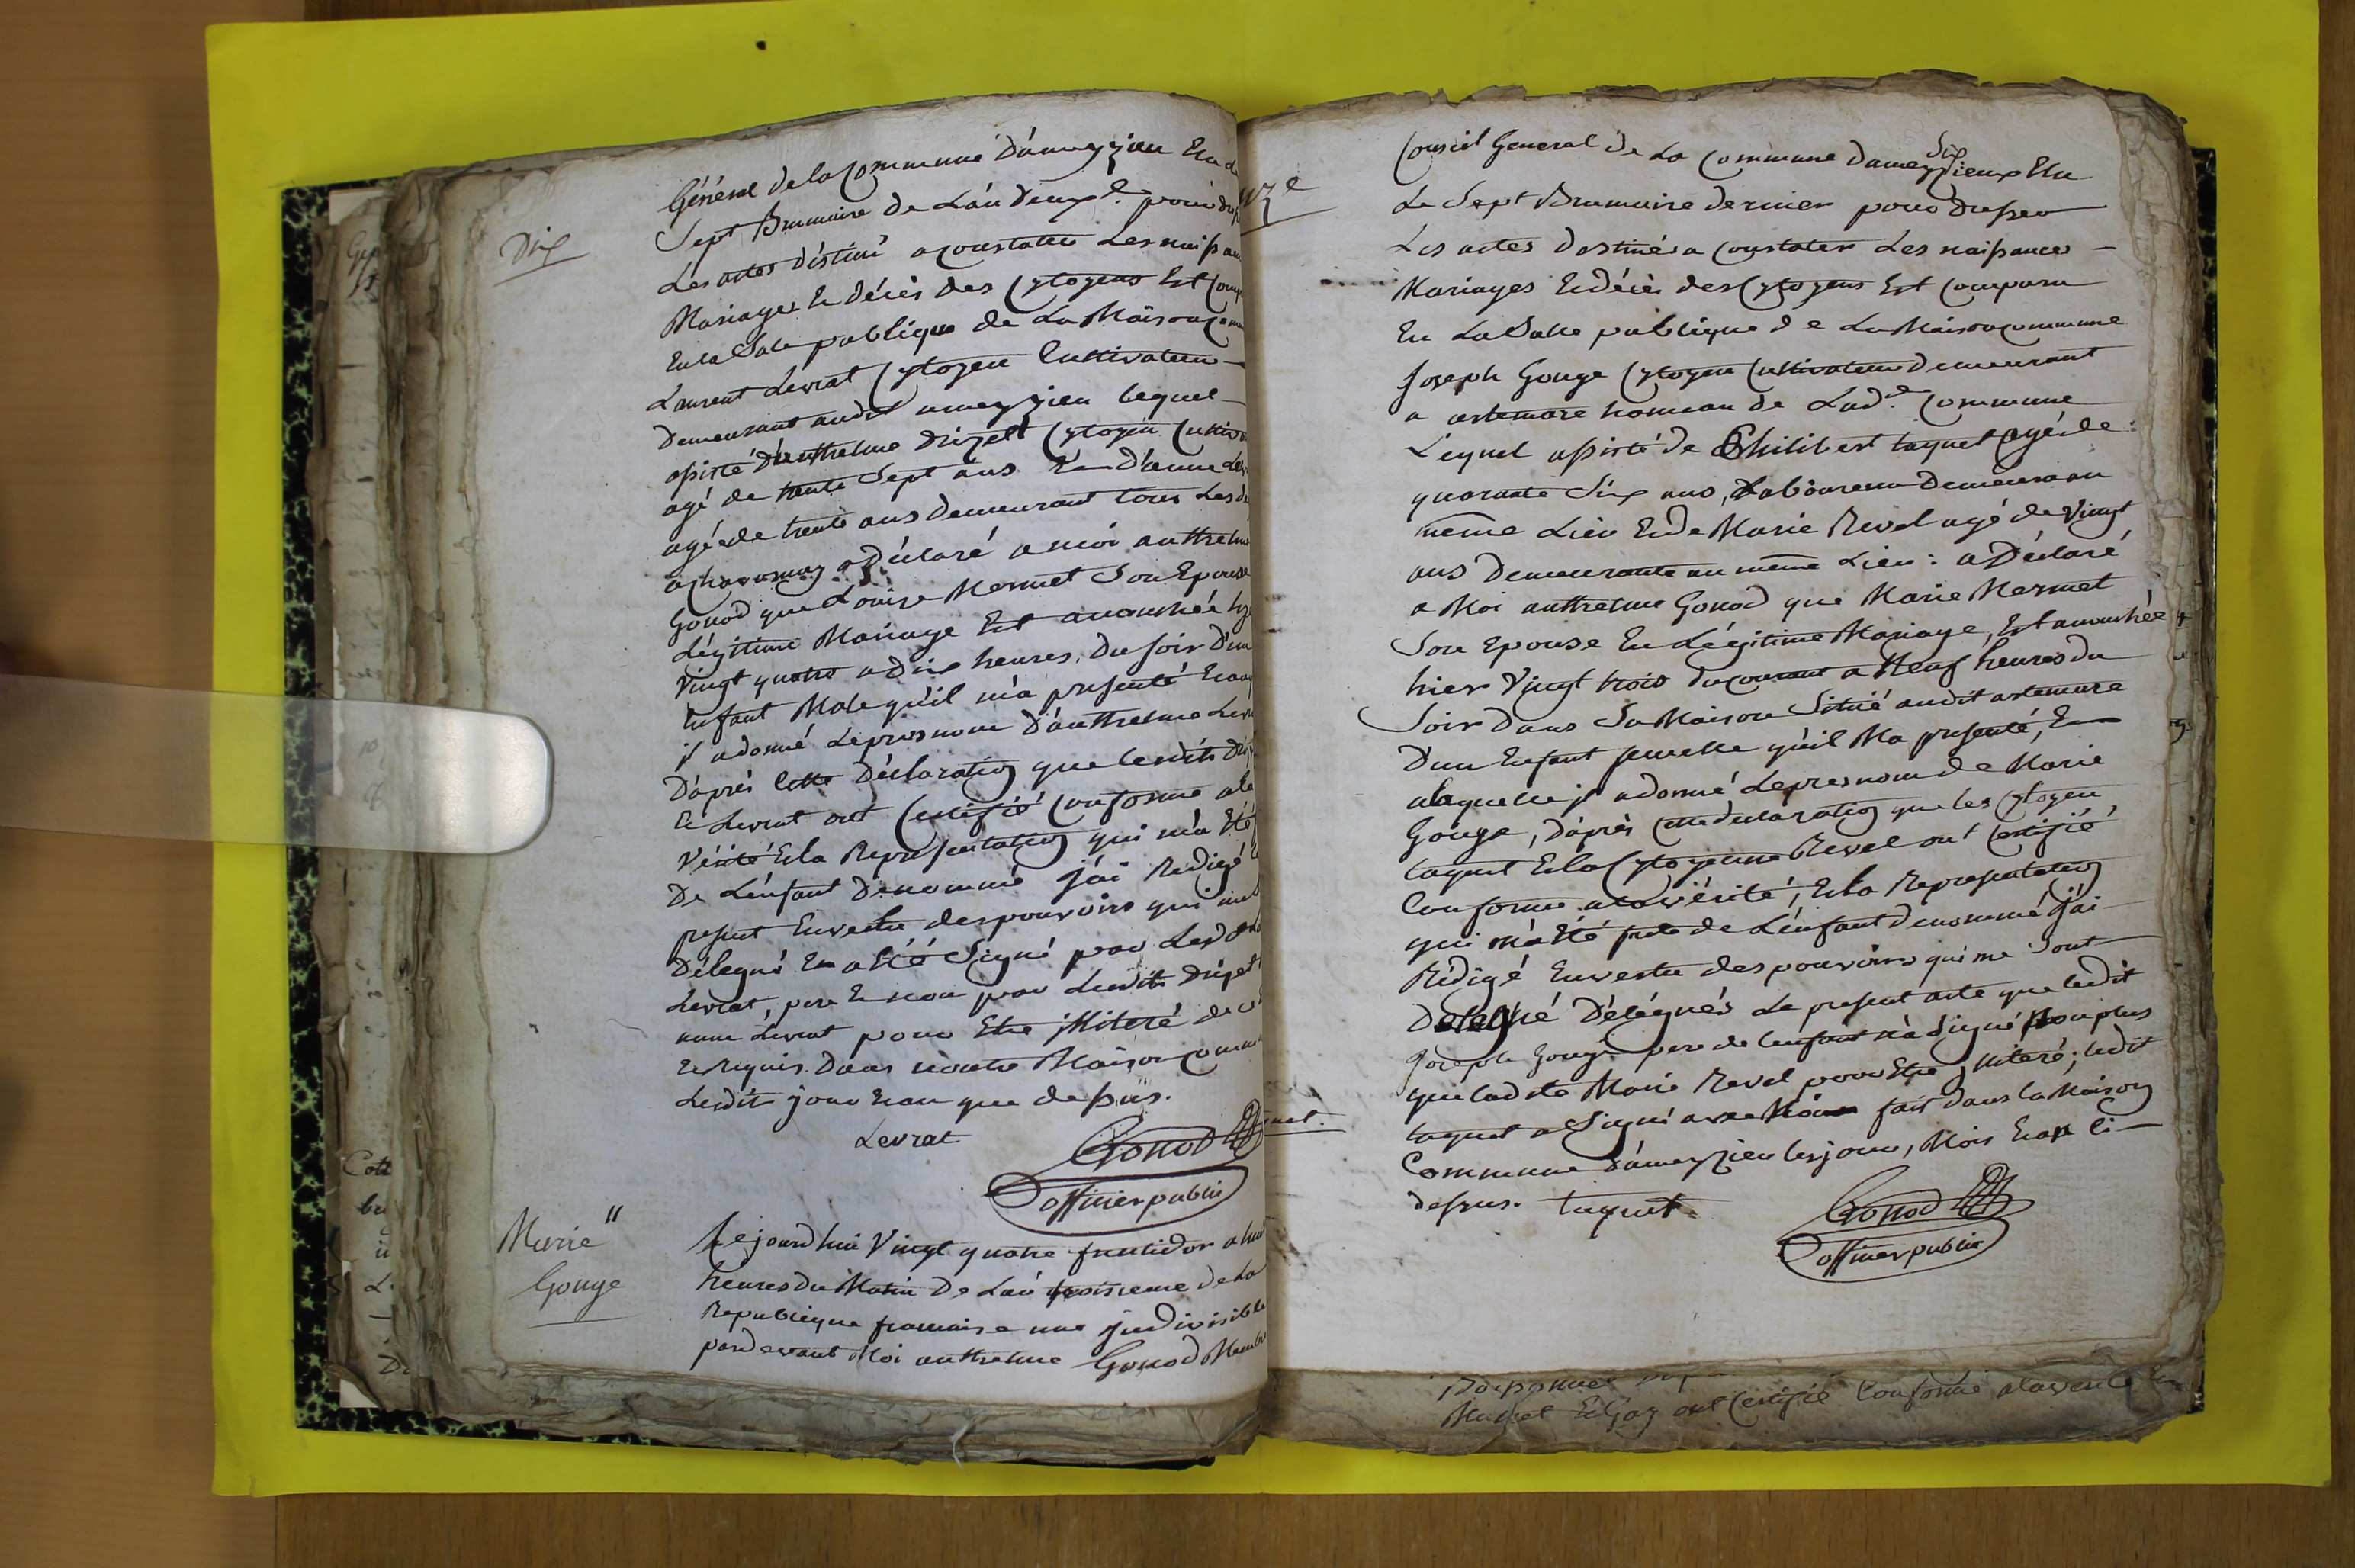 Dix
Général de la Commune D'ameyzieu Elu
Sept Brumaire De L'an Deuxe. pour
Les actes déstiné a Constater Les naissan
Mariages Et décès des Cytoyens Est Comp
En la Sale publique de La Maison Com
Laurent Levrat Cytoyen Cultivateur
Demeurant audit ameyzieu lequel
assisté D'anthelme Drizet Cytoyen Cultiva
agé de trente Sept ans Et D'anne Lev
agée de trente ans Demeurant tous Les d
a Charamay a Déclaré a moi anthelme
Gonod que Louise Mermet Son Epouse
Légitime Mariage Est accouchée hyer
Vingt quatre a Dix heures Du soir D'un
Enfant Male qu'il m'a presenté Et auq
il a donné Le presnom D'anthelme Levr
D'après Cette Déclaration que lesdits Driz
Et Levrat ont Certifié Conforme a la
Vérité Et la Representation qui m'a Eté
De L'enfant Denommé j'ai Redigé le
present En vertu des pouvoirs qui me
Délegué Et a Eté Signé par Led
Levrat, pere Et non par Lesdits Drizet
anne Levrat pour Etre illiteré de ce
Enquis. Dans nôtre Maison Comm
Lesdits jour Et an que dessus.
Levrat
Gonod
officier public
Marie
Gouge
Le jourd'hui Vingt quatre fructidor a huit
heures du Matin De L'an troisieme de La
Republique francaise une indivisible
pardevant Moi anthelme Gonod Memb
Six
Conseil General de La Commune D'ameyzieux Elu
Le Sept Brumaire dernier pour Dresser
Les actes destinés a Constater Les naissances
Mariages Et décès des Cytoyens Est Comparu
En La Salle publique de La Maison Commune
Joseph Gouge Cytoyen Cultivateur Demeurant
a artemare hameau de Lade. Commune
Lequel assisté de Philibert taquet agé de
quarante Six ans, Laboureur Demeurant au
même Lieu Et de Marie Revel agé de Vingt
ans Demeurante au même Lieu : a Déclaré
a Moi anthelme Gonod que Marie Mermet
Son Epouse En Légitime Mariage, Est accouchée
hier Vingt trois du courant a Neuf heures du
Soir Dans Sa Maison Situé audit artemare
D'un Enfant femelle qu'il M'a presenté, Et
a laquelle il a donné Le presnom de Marie
Gouge, D'après Cette declaration que les Cytoyen
taquet Et la Cytoyenne Revel ont Certifié
Conforme a la vérité, Et la Representation
qui m'a Eté faite de L'enfant denommé j'ai
Rédigé En vertu des pouvoirs qui me Sont
Delegué Délégués Le present acte que ledit
Joseph Gouge pere de l'enfant n'a Signé Non plus
que ladite Marie Revel pour Etre illiteré ; ledit
taquet a Signé avec Moi fait Dans la Maison
Commune D'ameyzieu les jour, Mois Et an Ci
dessus. taquet
Gonod
officier public
ont Certifié Conforme a la verité